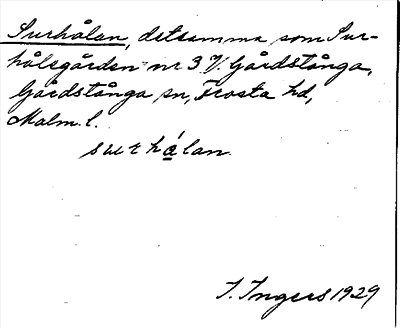 Surhålan, detsamma som Sur-
hålsgården nr 3 i Gårdstånga,
Gårdstånga sn, Frosta hd,
Malm. l.
surhálan.
I. Ingers 1929